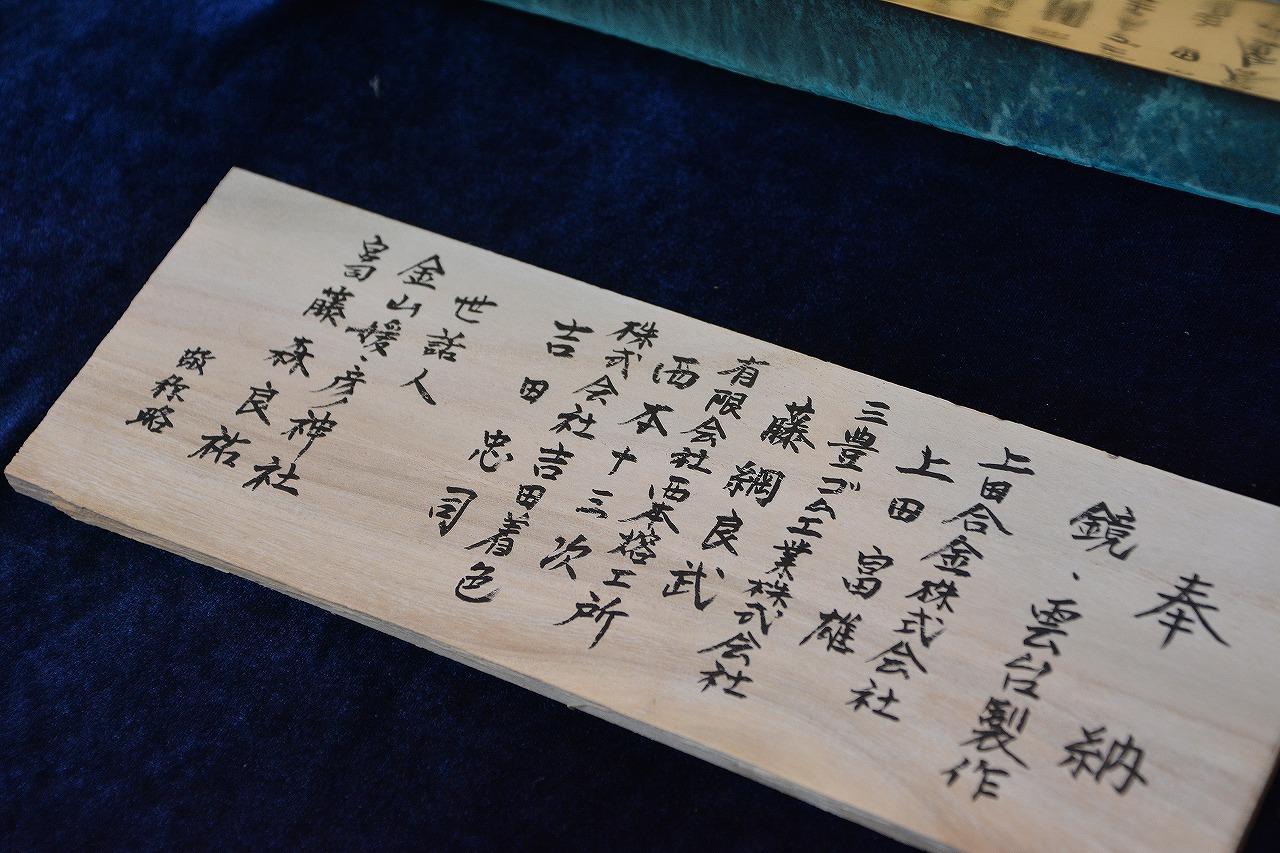 奉納
鏡・雲台製作
上田合金株式会社
上田富雄
三豊ゴム工業株式会社
藤綱良武
有限会社西本熔工所
西本十三次
株式会社吉田着色
吉田忠司
世話人
金山媛・彦神社
宮司 藤森良祐
敬称略